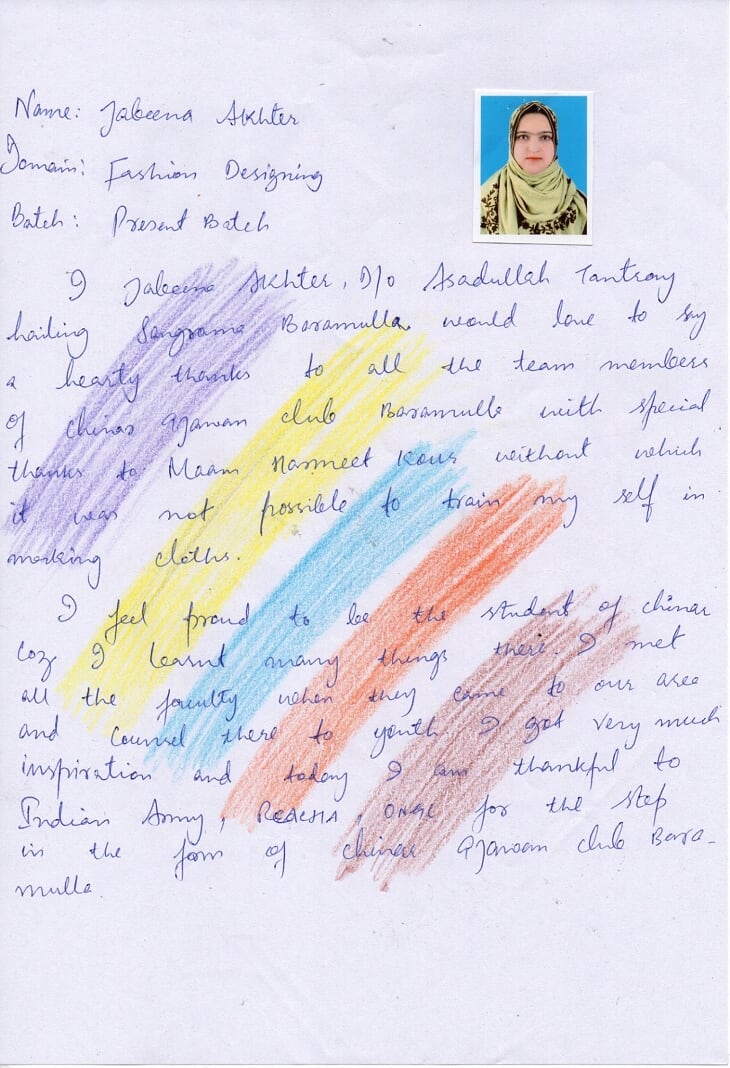 Name: Jabeena Akhter
Domain: Fashion Designing
Batch: Present Batch
I Jabeena Akhter, D/o Asadullah Tantray
hailing Sangrama Baramulla would love to say
a hearty thanks to all the team members
of chinar 9Jawan club Baramulla with special
thanks to Maam Harmeet Kour without which
it was not possible to train my self in
making cloths.
I feel proud to be the student of chinar
coz I learnt many things there. I met
all the faculty when they came to our area
and counsel there to youth I got very much
inspiration and today I am thankful to
Indian Army, REACHA, ONGC for the step
in the form of chinar 9Jawan club Bara-
mulla